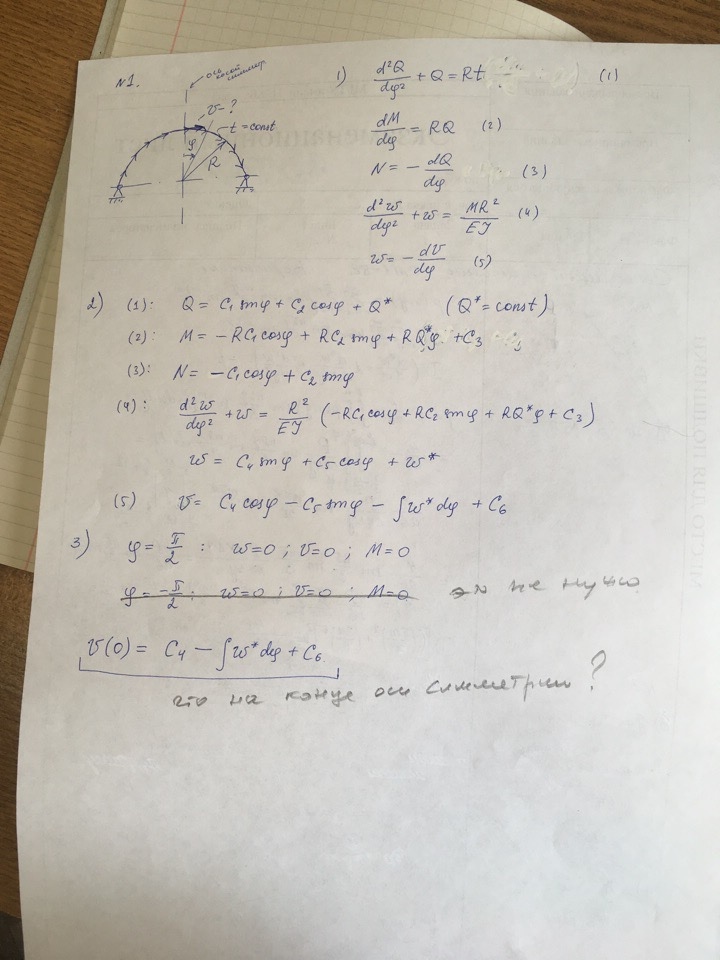 №1.
ось
косой
симметр
v-?
t=const
φ
R
1) d²Q/dφ² + Q = Rt (1)
dM/dφ = RQ (2)
N = - dQ/dφ (3)
d²w/dφ² + w = MR²/EJ (4)
w = - dv/dφ (5)
2) (1): Q = C₁ sinφ + C₂ cosφ + Q* (Q* = const)
(2): M = -RC₁cosφ + RC₂ sinφ + RQ*φ + C₃
(3): N = -C₁cosφ + C₂ sinφ
(4): d²w/dφ² + w = R²/EJ (-RC₁cosφ + RC₂ sinφ + RQ*φ + C₃)
w = C₄ sinφ + C₅ cosφ + w*
(5) v = C₄ cosφ - C₅ sinφ - ∫w*dφ + C₆
3) φ = π/2 : w=0 ; v=0 ; M=0
φ = -π/2 : w=0 ; v=0 ; M=0 это не нужно
v(0) = C₄ - ∫w*dφ + C₆
что на конце оси симметрии?